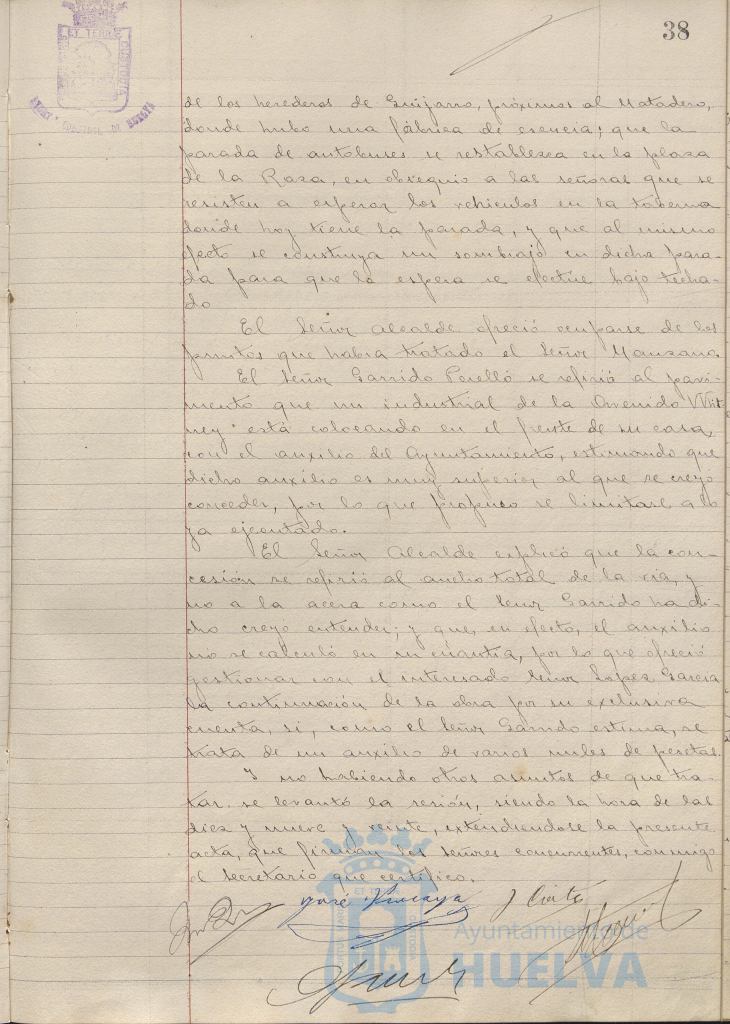 38
ET TERRE CUSTODIA
HUELVA
de los herederos de Guijarro, próximos al Matadero,
donde hubo una fábrica de esencia; que la
parada de autobuses se restablezca en la plaza
de la Raza, en obsequio a las señoras que se
resisten a esperar los vehiculos en la taberna
donde hoy tiene la parada, y que al mismo
efecto se construya un sombrajo en dicha para-
da para que la espera se efectue bajo techa-
do
El Señor Alcalde ofreció ocuparse de los
puntos que habia tratado el Señor Manzano.
El Señor Garrido Perelló se refirió al pavi-
mento que un industrial de la Avenida Wit-
ney está colocando en el frente de su casa,
con el auxilio del Ayuntamiento, estimando que
dicho auxilio es muy superior al que se creyó
conceder, por lo que propuso se limitase a lo
ya ejecutado.
El Señor Alcalde explicó que la con-
cesión se refirió al ancho total de la via, y
no a la acera como el Señor Garrido ha di-
cho creyó entender; y que, en efecto, el auxilio
no se calculó en su cuantia, por lo que ofreció
gestionar con el interesado Señor López Garcia
la continuación de la obra por su exclusiva
cuenta, si, como el Señor Garrido estima, se
trata de un auxilio de varios miles de pesetas.
Y no habiendo otros asuntos de que tra-
tar, se levantó la sesión, siendo la hora de las
diez y nueve y veinte, extendiendose la presente
acta, que firman los señores concurrentes, conmigo
el Secretario que certifico.
José
ET TERRE
CUSTODIA
Ayuntamiento de
HUELVA